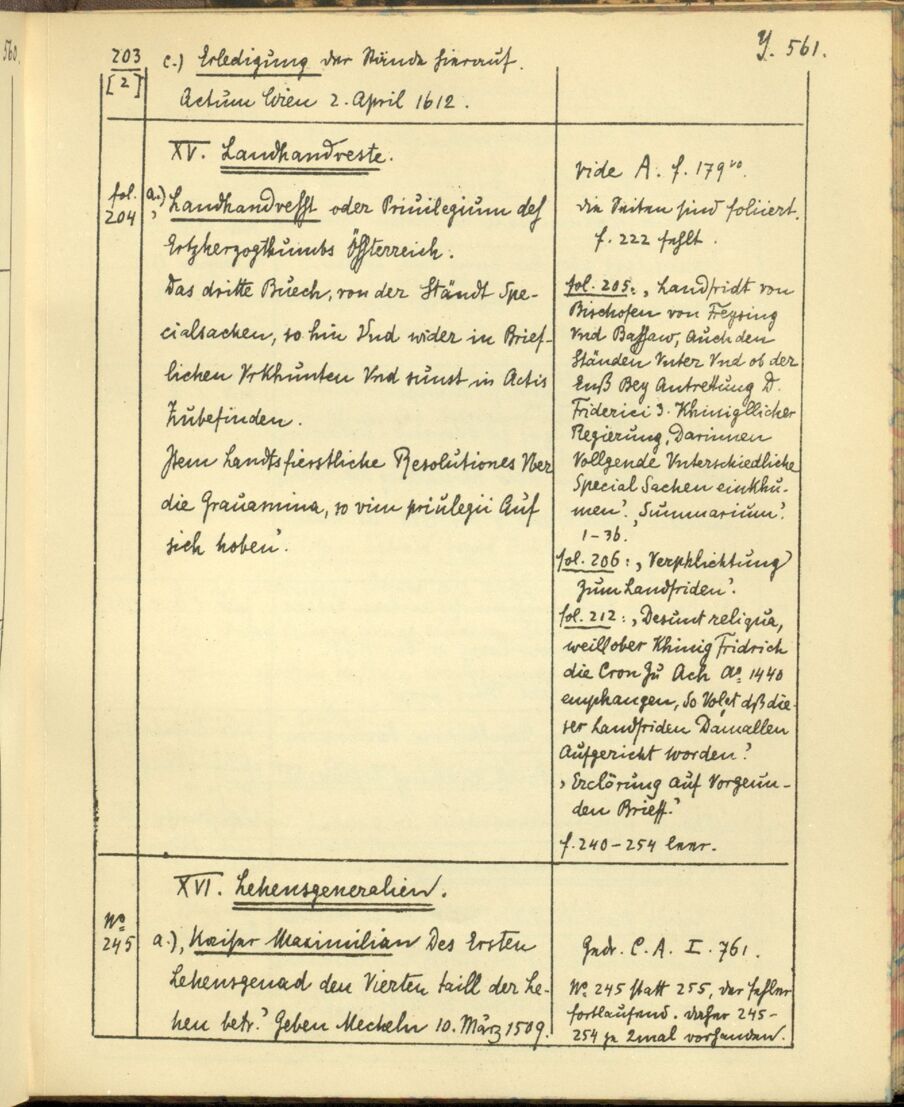 560
Y. 561.
203
[2]
c.) Erledigung der Stände hierauf.
Actum Wien 2. April 1612.
XV. Landhandveste.
fol.
204
a.) ‚Landhandvesst oder Priuilegium des
Ertzherzogthumbs Össterreich.
Das dritte Buech, von der Ständt Spe-
cialsachen, so hin Vnd wider in Brief-
lichen Vrkhunten Vnd sunst in Actis
Zubefinden.
Item Landtsfierstliche Resolutiones Vber
die Grauamina, so vim priuilegii Auf
sich hoben‘.
vide A. f. 179
die Seiten sind foliiert.
f. 222 fehlt.
fol. 205: ‚Landfridt von
Bischofen von Freysing
Vnd Bassaw, Auch den
Ständen Vnter Vnd ob der
Enß Bey Antrettung D.
Friderici 3. Khinigllicher
Regierung, Darinnen
Vollgende Vnterschiedliche
Special Sachen einkhu-
men‘. ‚Summarium‘.
1–36.
fol. 206: ‚Verphlichtung
Zum Landfriden‘.
fol. 212: ‚Desunt reliqua,
weill ober Khinig Fridrich
die Cron Zu Ach Aº 1440
emphangen, So Volgt dß die-
ser Landfriden Damallen
Aufgericht worden‘.
‚Erclörung auf Vorgeun-
den Brieff.‘
f. 240–254 leer.
XVI. Lehensgeneralien.
Nº
245
a.) ‚Kaiser Maximilian Des Ersten
Lehensgenad den Vierten taill der Le-
hen betr.‘ Geben Mecheln 10. März 1509.
Gedr. C. A. I. 761.
Nº 245 statt 255, der Fehler
fortlaufend. daher 245–
254 je 2mal vorhanden.